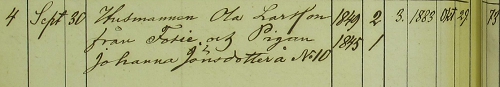 4 Sept 30 Husmannen Ola Larsson 1849 2 3. 1883 Okt 29 73
från Fosie, och Pigan 1845 1
Johanna Jönsdotter å No 10